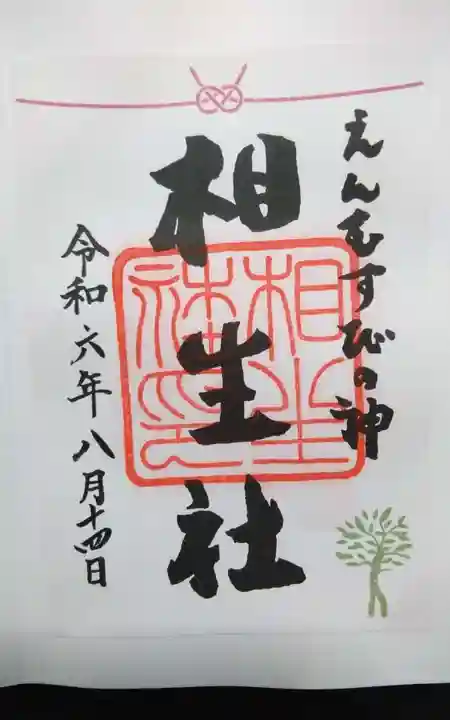 えんむすびの神
相生社
相生社印
令和六年八月十四日